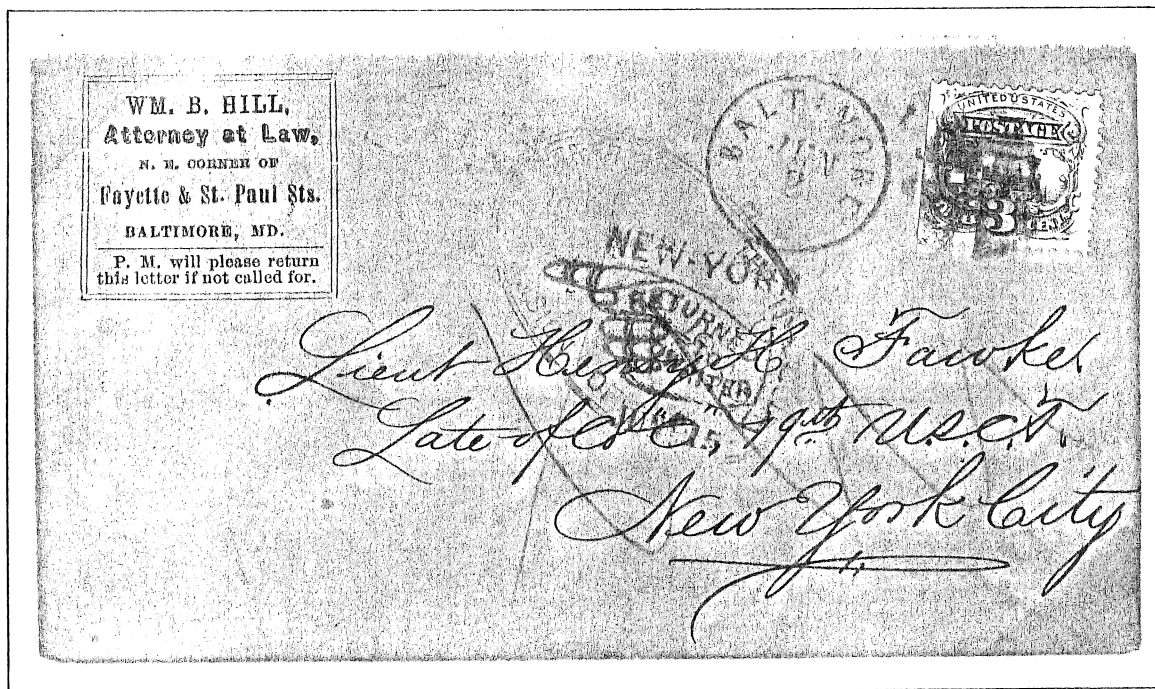 WM. B. HILL,
Attorney at Law,
N. E. CORNER OF
Fayette & St. Paul Sts.
BALTIMORE, MD.
P. M. will please return
this letter if not called for.
BALTIMORE
UNITED STATES
POSTAGE
3
NEW-YORK
RETURNED
TO
WRITER
Lieut Henry H. Fawkes
Late of Co "C", 9th U.S.C.T.
New York City